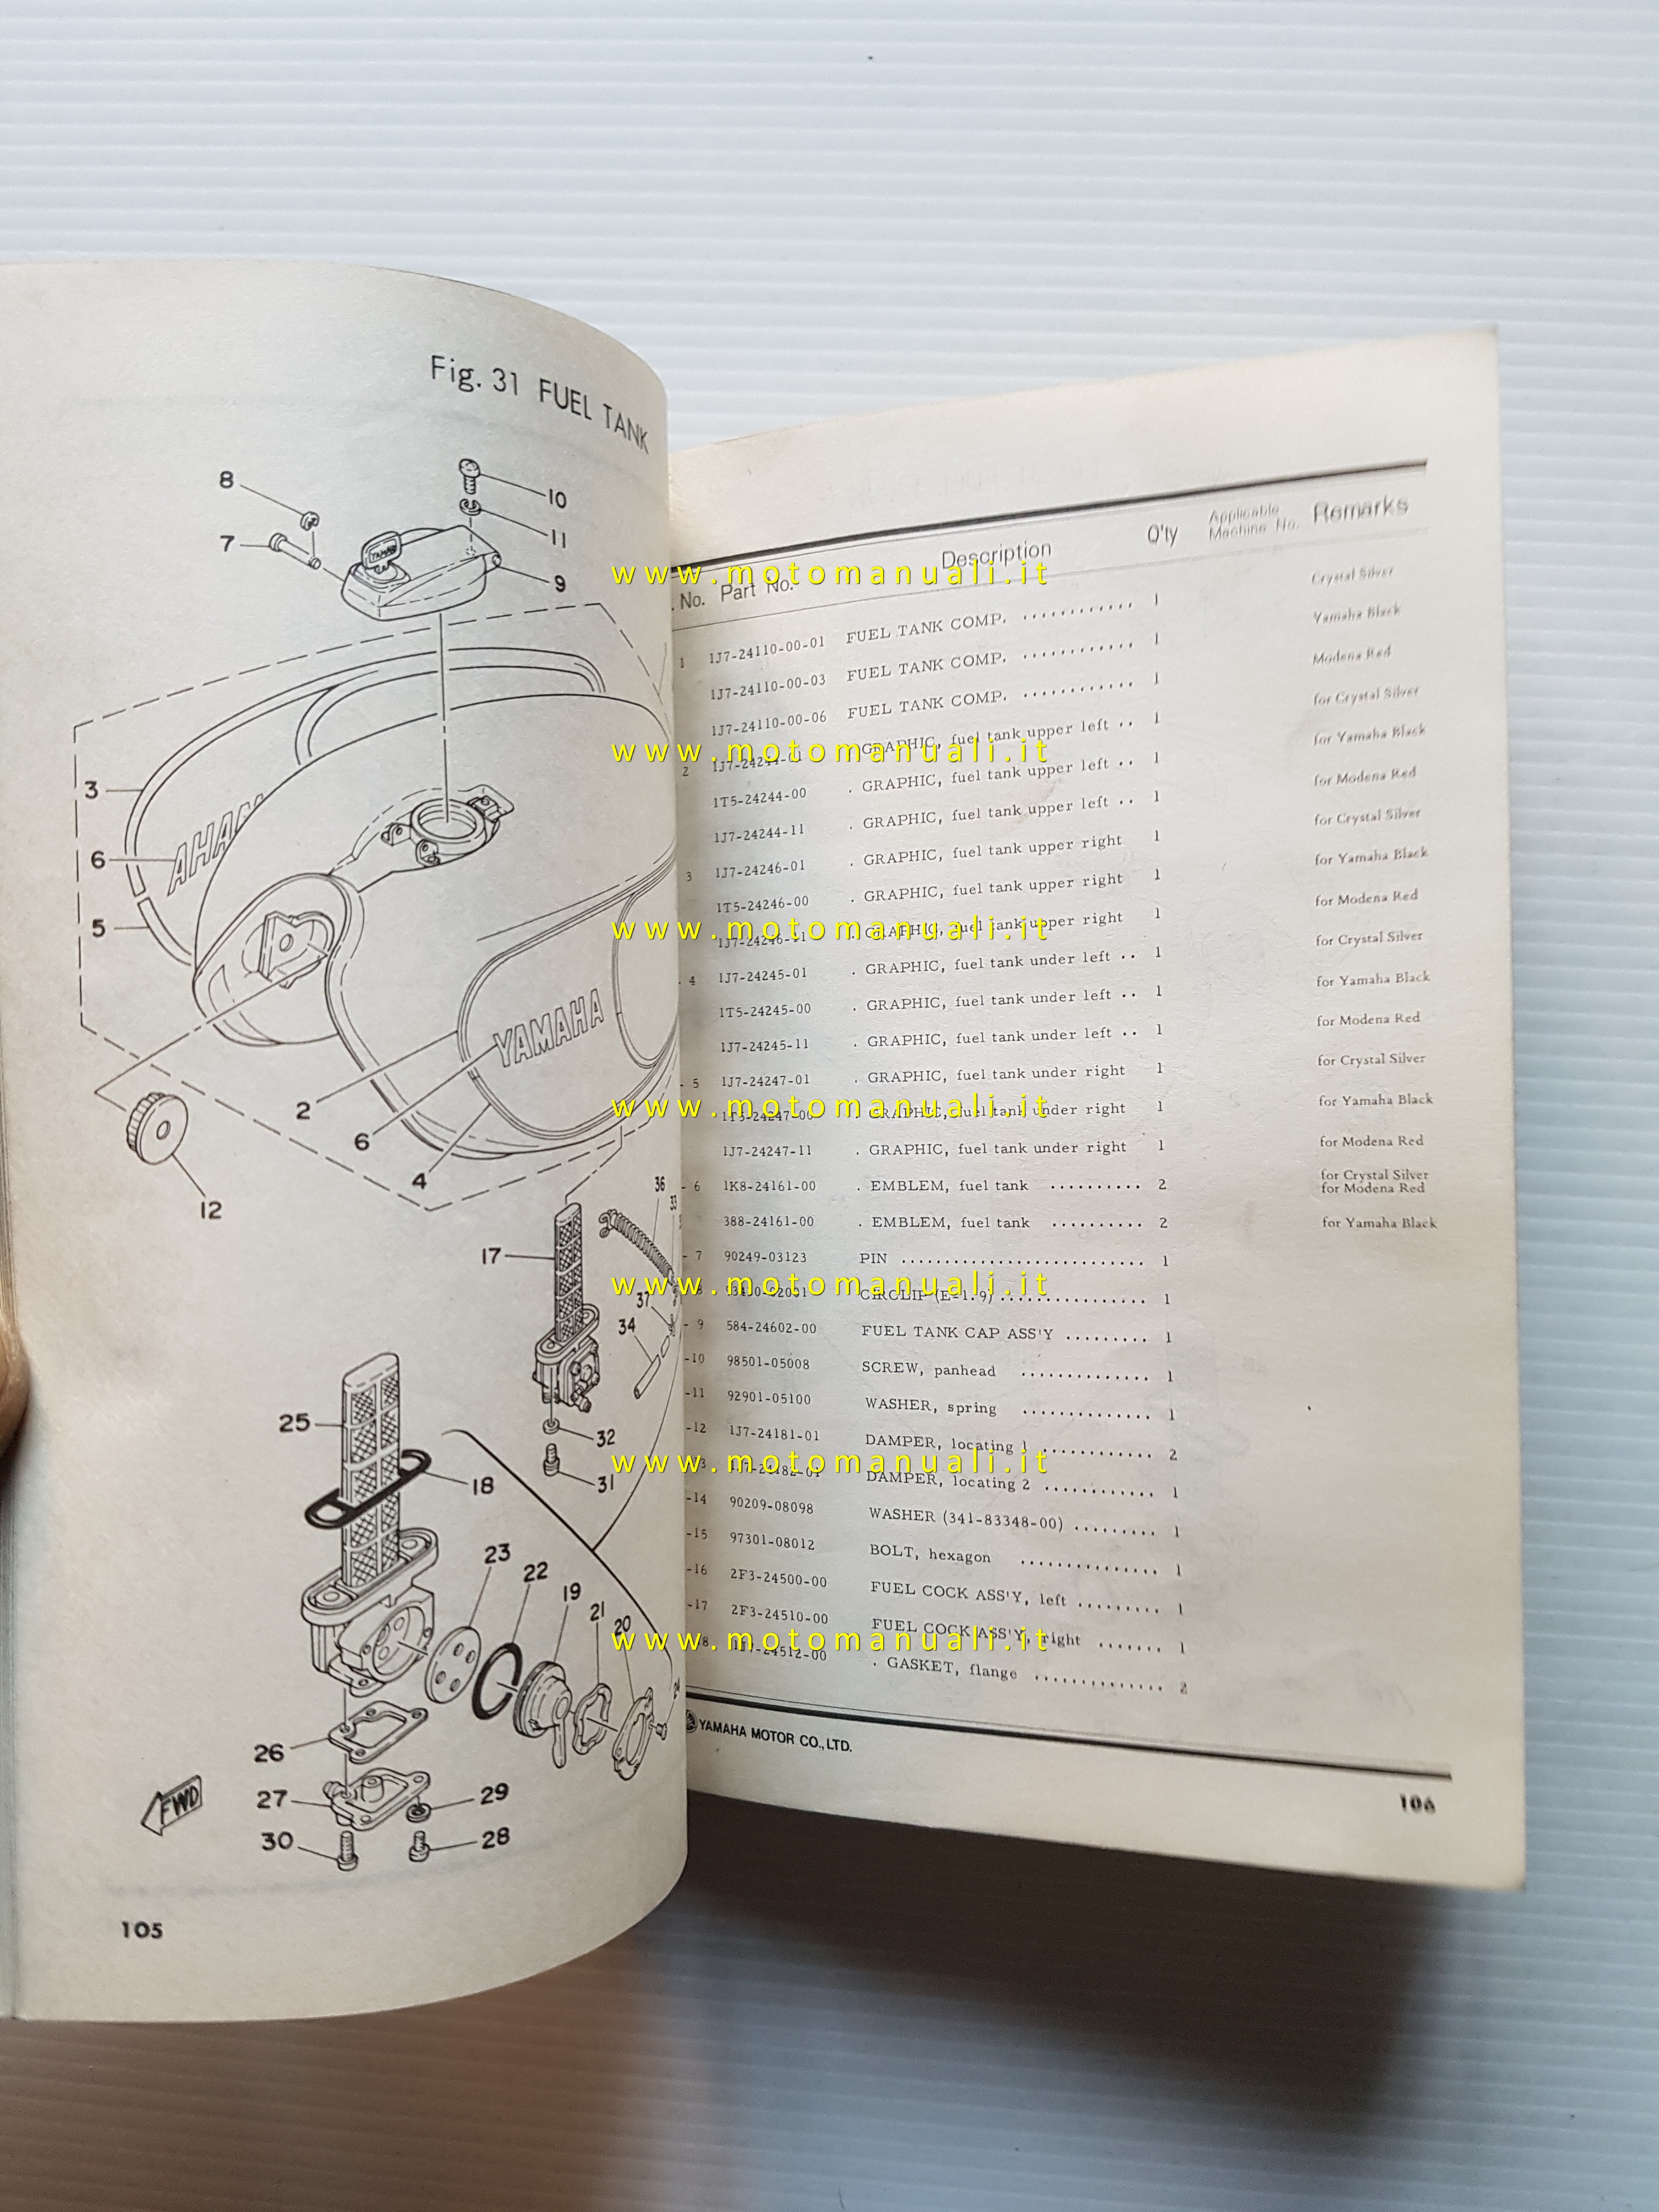 Fig. 31 FUEL TANK
8
7
10
11
9
YAMAHA
3
6
5
AHAM
YAMAHA
2
6
4
12
36
33
17
37
34
32
31
25
18
23
22
19
21
20
24
26
27
30
29
28
FWD
105
No. Part No. Description Q'ty Applicable Machine No. Remarks
1 1J7-24110-00-01 FUEL TANK COMP. ............ 1 Crystal Silver
1J7-24110-00-03 FUEL TANK COMP. ............ 1 Yamaha Black
1J7-24110-00-06 FUEL TANK COMP. ............ 1 Modena Red
2 1J7-24244-01 . GRAPHIC, fuel tank upper left .. 1 for Crystal Silver
1T5-24244-00 . GRAPHIC, fuel tank upper left .. 1 for Yamaha Black
1J7-24244-11 . GRAPHIC, fuel tank upper left .. 1 for Modena Red
3 1J7-24246-01 . GRAPHIC, fuel tank upper right 1 for Crystal Silver
1T5-24246-00 . GRAPHIC, fuel tank upper right 1 for Yamaha Black
1J7-24246-11 . GRAPHIC, fuel tank upper right 1 for Modena Red
- 4 1J7-24245-01 . GRAPHIC, fuel tank under left .. 1 for Crystal Silver
1T5-24245-00 . GRAPHIC, fuel tank under left .. 1 for Yamaha Black
1J7-24245-11 . GRAPHIC, fuel tank under left .. 1 for Modena Red
- 5 1J7-24247-01 . GRAPHIC, fuel tank under right 1 for Crystal Silver
1T5-24247-00 . GRAPHIC, fuel tank under right 1 for Yamaha Black
1J7-24247-11 . GRAPHIC, fuel tank under right 1 for Modena Red
- 6 1K8-24161-00 . EMBLEM, fuel tank .......... 2 for Crystal Silver
for Modena Red
388-24161-00 . EMBLEM, fuel tank .......... 2 for Yamaha Black
- 7 90249-03123 PIN ............................ 1
CIRCLIP (E-1.9) ................. 1
- 9 584-24602-00 FUEL TANK CAP ASS'Y ......... 1
-10 98501-05008 SCREW, panhead .............. 1
-11 92901-05100 WASHER, spring .............. 1
-12 1J7-24181-01 DAMPER, locating 1 ............ 2
1J7-24182-01 DAMPER, locating 2 ............ 1
-14 90209-08098 WASHER (341-83348-00) ......... 1
-15 97301-08012 BOLT, hexagon ............... 1
-16 2F3-24500-00 FUEL COCK ASS'Y, left ......... 1
-17 2F3-24510-00 FUEL COCK ASS'Y, right ....... 1
1J7-24512-00 . GASKET, flange .............. 2
YAMAHA MOTOR CO., LTD.
106
www.motomanuali.it
www.motomanuali.it
www.motomanuali.it
www.motomanuali.it
www.motomanuali.it
www.motomanuali.it
www.motomanuali.it